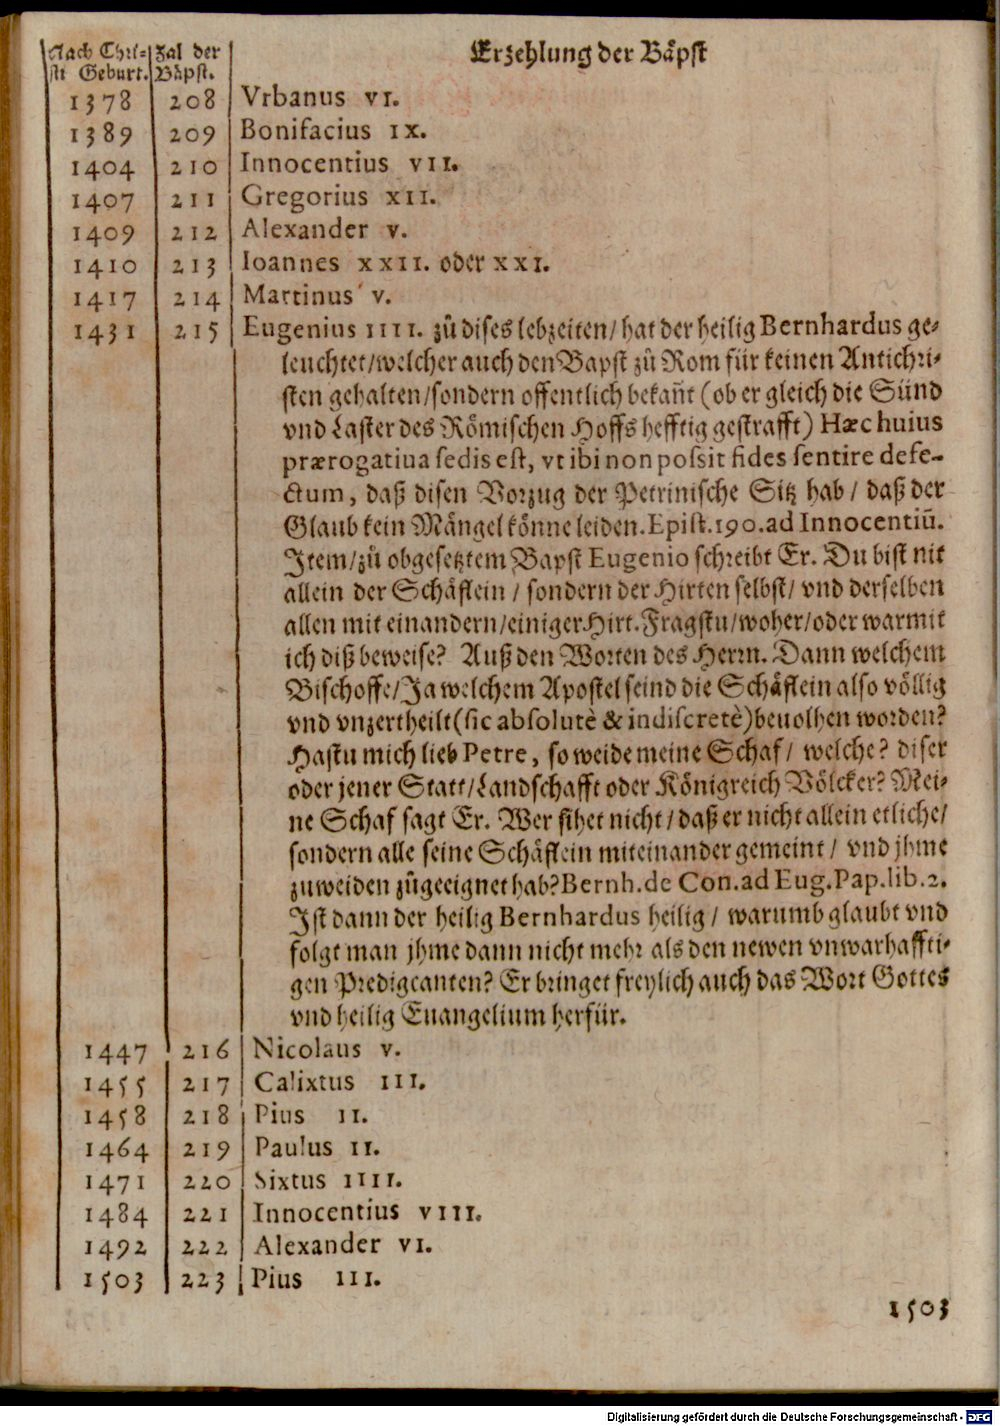 Nach Chri- Zal der Erzehlung der Bäpst
sti Geburt. Bäpst.
1378 208 Vrbanus VI.
1389 209 Bonifacius IX.
1404 210 Innocentius VII.
1407 211 Gregorius XII.
1409 212 Alexander V.
1410 213 Ioannes XXII. oder XXI.
1417 214 Martinus V.
1431 215 Eugenius IIII. zů dises lebzeiten/ hat der heilig Bernhardus ge-
leuchtet/welcher auch den Bapst zů Rom für keinen Antichri-
sten gehalten/sondern offentlich bekañt (ob er gleich die Sünd
vnd Laster des Römischen Hoffs hefftig gestrafft) Hæc huius
prærogatiua sedis est, vt ibi non possit fides sentire defe-
ctum, daß disen Vorzug der Petrinische Sitz hab/ daß der
Glaub kein Mängel könne leiden. Epist. 190. ad Innocentiũ.
Item/zů obgesetztem Bapst Eugenio schreibt Er. Du bist nit
allein der Schäflein/ sondern der Hirten selbst/ vnd derselben
allen mit einandern/einiger Hirt. Fragstu/woher/oder warmit
ich diß beweise? Auß den Worten des Herrn. Dann welchem
Bischoffe/Ja welchem Apostel seind die Schäflein also völlig
vnd vnzertheilt(sic absolutè & indiscretè)beuolhen worden?
Hastu mich lieb Petre, so weide meine Schaf/ welche? diser
oder jener Statt/Landschafft oder Königreich Völcker? Mei-
ne Schaf sagt Er. Wer sihet nicht/ daß er nicht allein etliche/
sondern alle seine Schäflein miteinander gemeint/ vnd jhme
zuweiden zůgeeignet hab? Bernh. de Con. ad Eug. Pap. lib. 2.
Ist dann der heilig Bernhardus heilig/ warumb glaubt vnd
folgt man jhme dann nicht mehr als den newen vnwarhaffti-
gen Predigcanten? Er bringet freylich auch das Wort Gottes
vnd heilig Euangelium herfür.
1447 216 Nicolaus V.
1455 217 Calixtus III.
1458 218 Pius II.
1464 219 Paulus II.
1471 220 Sixtus IIII.
1484 221 Innocentius VIII.
1492 222 Alexander VI.
1503 223 Pius III.
1503
Digitalisierung gefördert durch die Deutsche Forschungsgemeinschaft - DFG